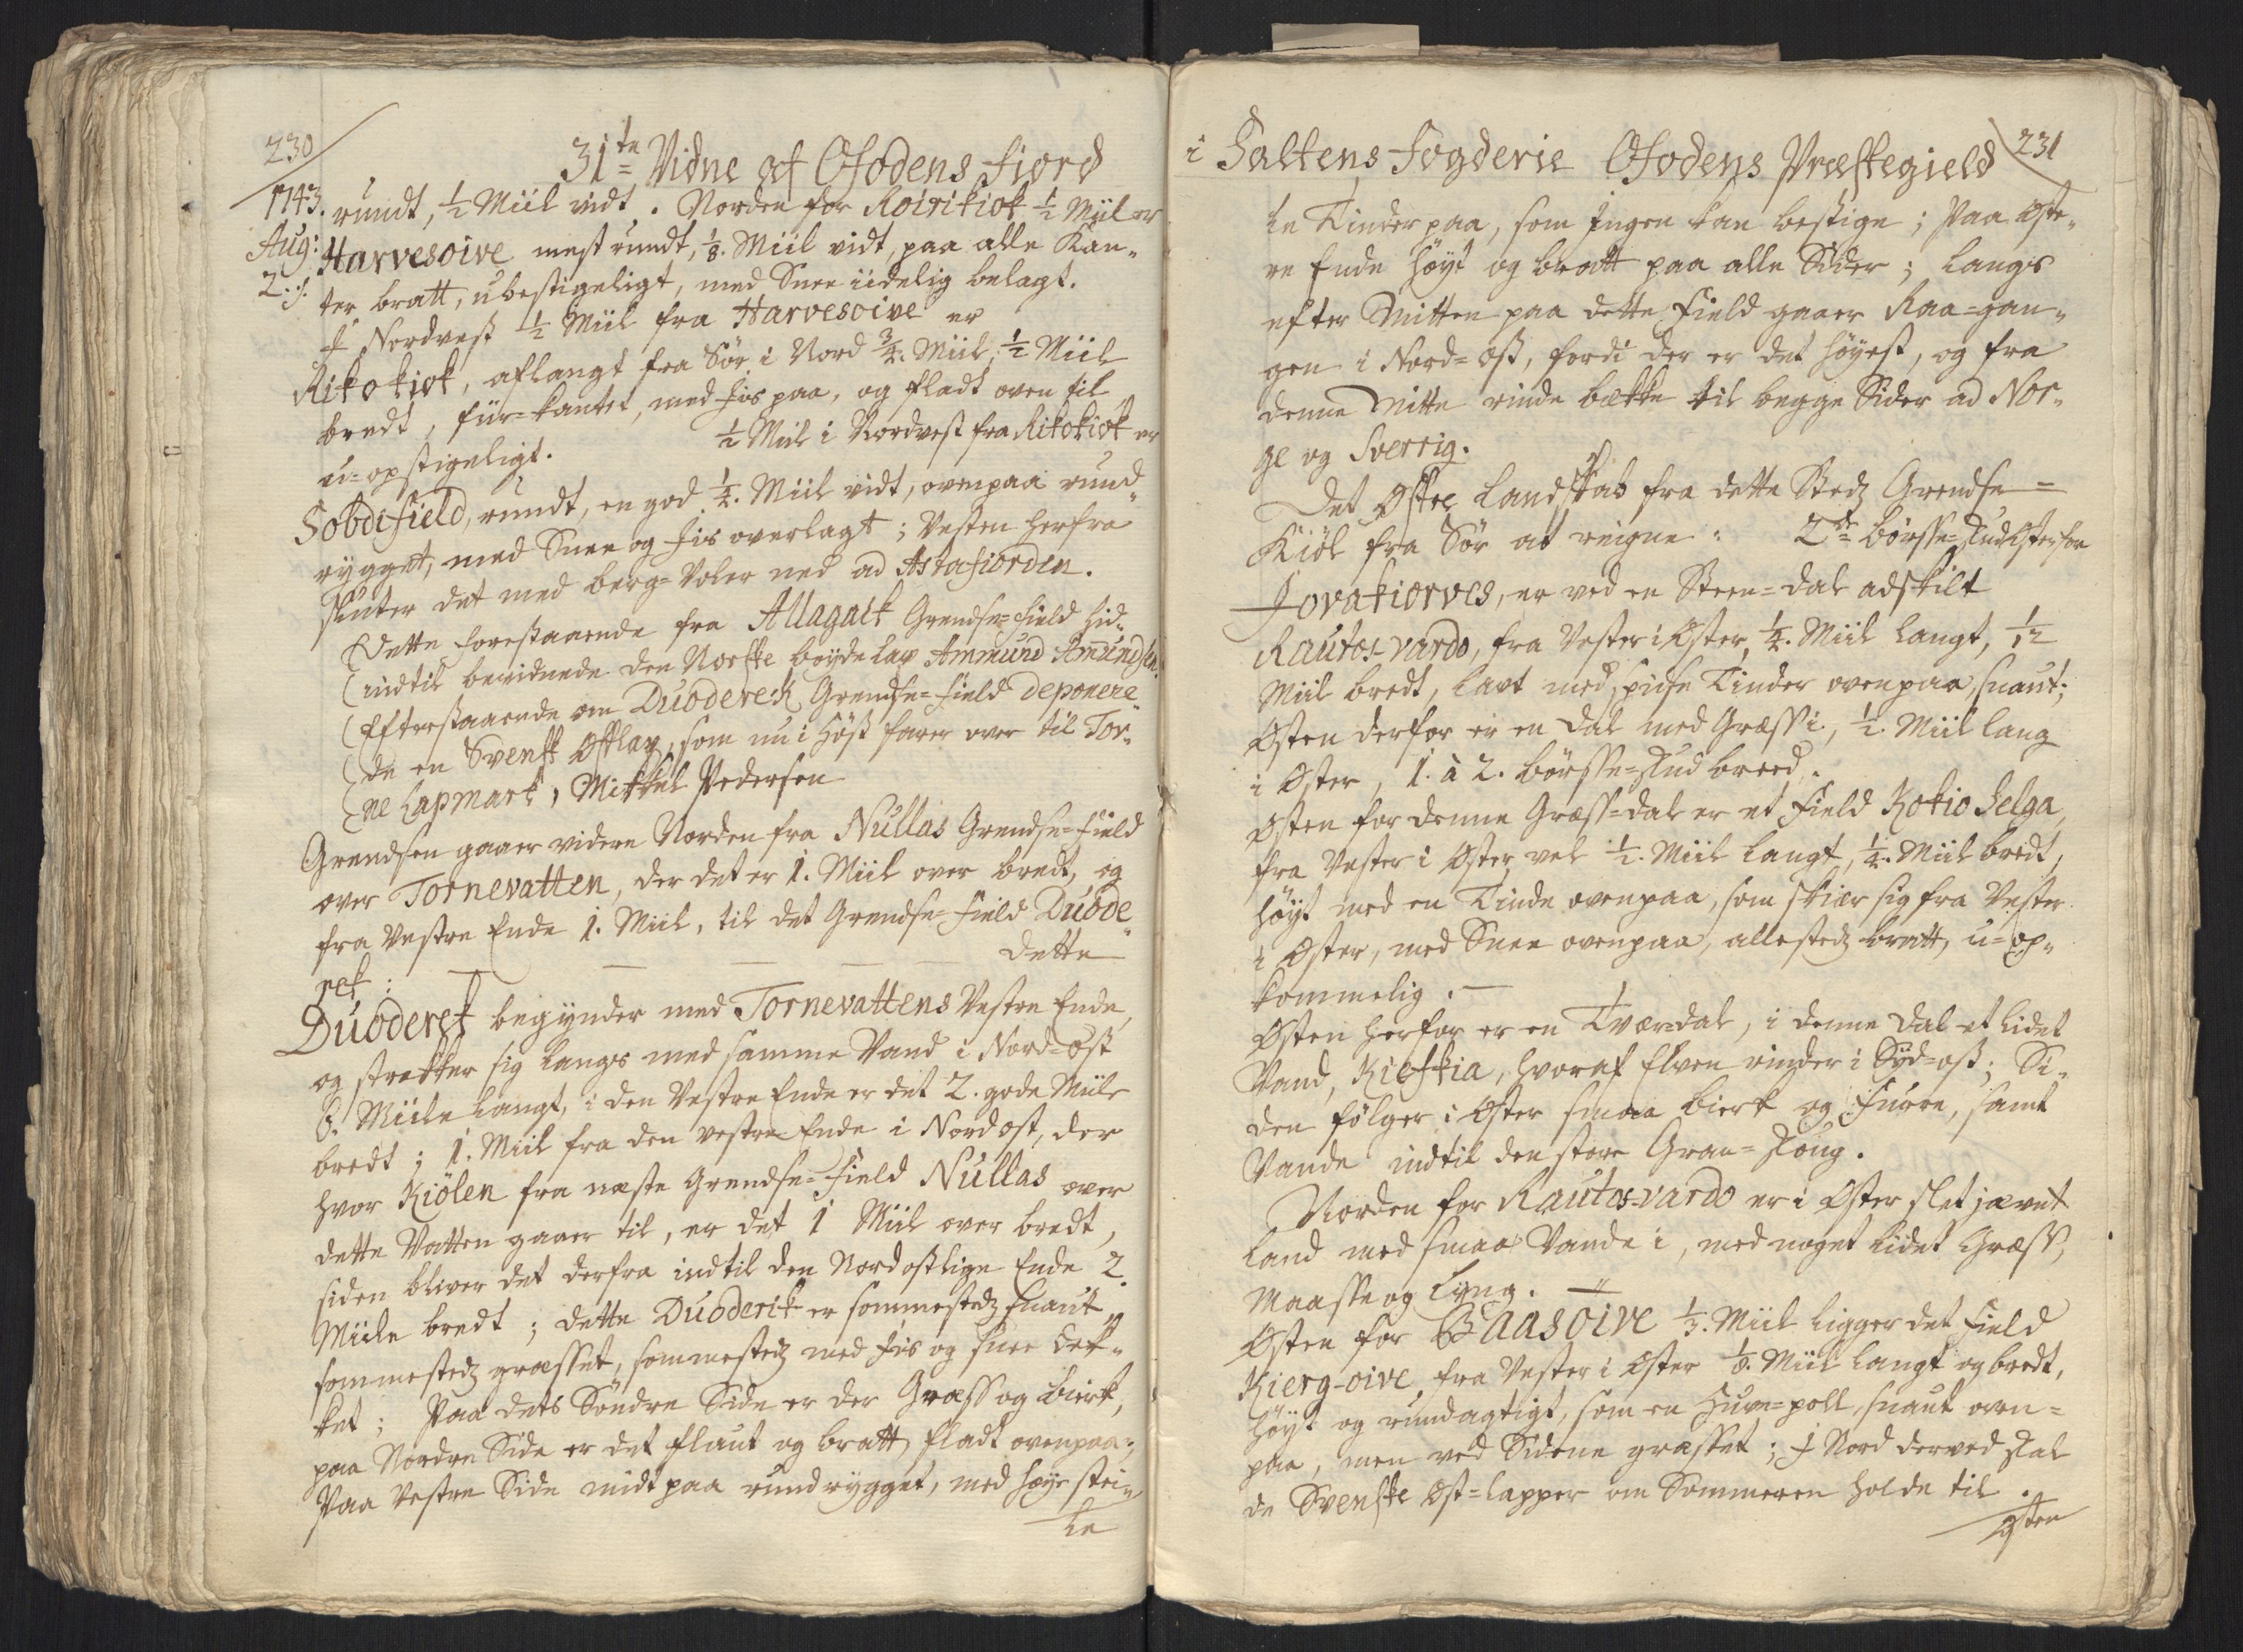 230
31te Vidne af Ofodens Fiord
1743.
Aug:
2:s:
rundt, ½ Miil vidt. Norden for Roirikiok ½ Myil er
Harvesoive mest rundt, ⅛. Miil vidt, paa alle Kan„
ter bratt, ubestigeligt, med Snee iidelig belagt.
I Nordvest ½ Miil fra Harvesoive er
Rikokiok, aflangt fra Sør i Nord ¾. Miil, ½ Miil
bredt, fiir-kantet, med Iis paa, og fladt oven til
u-opstigeligt.
½ Miil i Nordvest fra Rikokiok er
Sobdifield, rundt, en god ¼. Miil vidt, ovenpaa rund„
rygget, med Snee og Iis overlagt; Vesten herfra
skuter det med berg-Voler ned ad Astafiorden.
Dette forestaaende fra Allagaik Grendse-Field hid„
indtil bevidnede den Norske bøyde Lap Ammund Amundsen.
Efterstaaende om Duoderek Grendse-Field deponere„
de en Svensk Østlap, som nu i Høst farer over til Tor„
ne Lapmark, Mikkel Pedersen
Grendsen gaaer videre Norden fra Nullas Grendse-Field
over Tornevatten, der det er 1. Miil over bredt, og
fra Vestre Ende 1. Miil, til det Grendse-Field Duode„
rek:
Dette
Duoderek begynder med Tornevattens Vestre Ende,
og strekker sig langs med samme Vand i Nord-ost
6. Miile langt, i den Vestre Ende er det 2. gode Miile
bredt; 1. Miil fra den vestre Ende i Nordost, der
hvor Kiölen fra næste Grendse-Field Nullas over
dette Vatten gaaer til, er det 1 Miil over bredt,
siden bliver det derfra indtil den Nordostlige Ende 2.
Miile bredt; dette Duoderik er sommestedz snaut,
sommestedz græsset, sommestedz med Iis og snee dek„
ket; Paa dets Søndre Side er der Græss og Birk,
paa Nordre Side er det flaut og bratt, fladt ovenpaa;
Paa Vestre Side midt paa rundrygget, med høye stei„
le
i Saltens Fogderie Ofodens Præstegield
231
le Tinder paa, som Ingen kan bestige; Paa Øste„
re Ende høyt og bratt paa alle Sider; Langs
efter Mitten paa dette Field gaaer Raa-gan„
gen i Nord-ost, fordi der er det høyest, og fra
denne Mitte rinde bække til begge Sider ad Nor„
ge og Sverrig.
Det Østre Landskab fra dette Stedz Grendse-
Kiöl fra Sør at reigne: 2de børsse-skud Øster for
Jovakiorves, er ved en Steen-dal adskilt
Rautos-vardo, fra Vester i Øster, ¼. Miil langt, 1/12
Miil bredt, lavt med spidse Tinder ovenpaa, snaut;
Østen derfor er en dal med Græss i, ½. Miil lang
i Øster, 1. à 2. børsse-skud breed.
Østen for denne Græss-dal er et Field Kokio Selga,
fra Vester i Øster vel ½. Miil langt, ¼. Miil bredt,
høyt med en Tinde ovenpaa, som skiær sig fra Vester
i Øster, med Snee ovenpaa, allestedz bratt, u-op„
kommelig.
Østen herfor er en Tvær-dal, i denne dal et lidet
Vand, Kiefkia, hvoraf Elven rinder i Syd-ost; Si„
den følger i Øster smaa Birk og Furre, samt
Vande indtil den store Gran-skoug.
Norden for Rautos-vardo er i Øster slet jævnt
Land med smaa Vande i, med noget lidet Græss,
Maasse og Lyng.
Østen for Baasoive ⅓. Miil ligger det Field
Kierg-oive, fra Vester i Øster ⅛. Miil langt og bredt,
høyt og rundagtigt, som en Huve-poll, snaut oven-
paa, men ved Siderne græsset; I Nord derved skal
de Svenske Øst-lapper om Sommeren holde til.
Østen